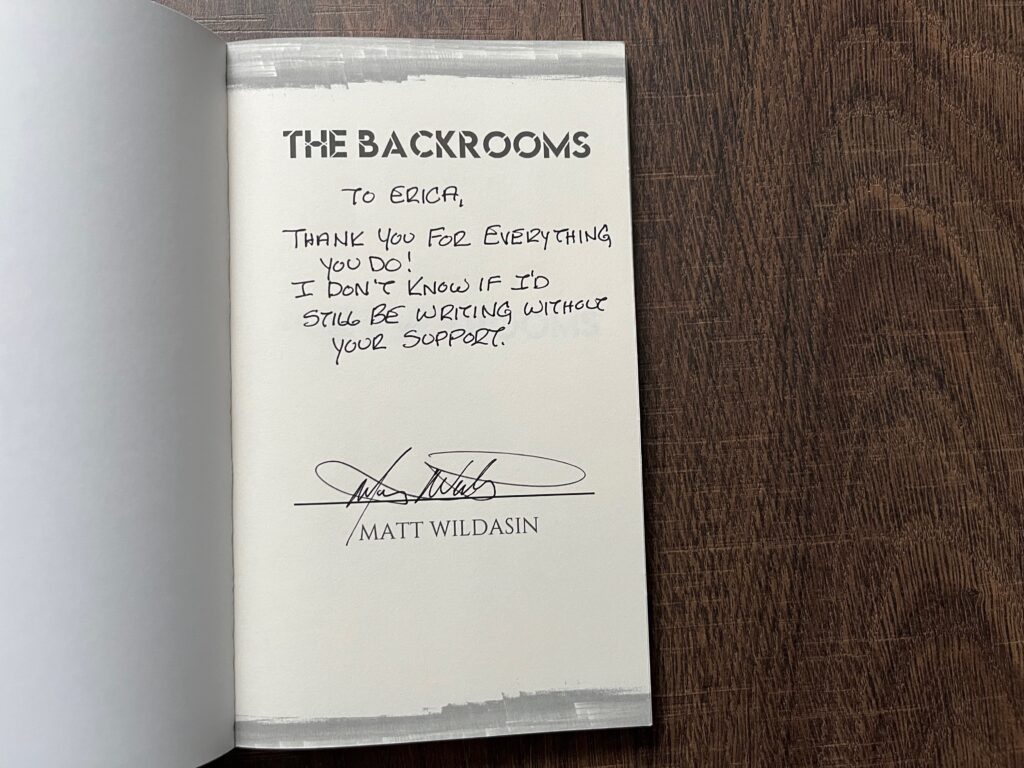 THE BACKROOMS
TO ERICA,
THANK YOU FOR EVERYTHING
YOU DO!
I DON'T KNOW IF I'D
STILL BE WRITING WITHOUT
YOUR SUPPORT.
MATT WILDASIN